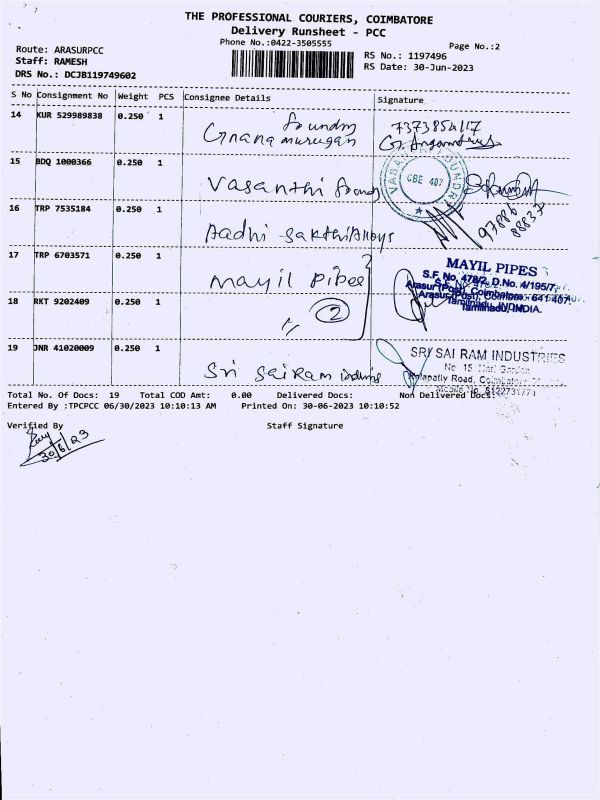 THE PROFESSIONAL COURIERS, COIMBATORE
Delivery Runsheet - PCC
Phone No.:0422-3505555
Page No.:2
Route: ARASURPCC
Staff: RAMESH
DRS No.: DCJB119749602
RS No.: 1197496
RS Date: 30-Jun-2023
S No Consignment No Weight PCS Consignee Details Signature
14 KUR 529989838 0.250 1 Gnana murugan foundry
15 BDQ 1000366 0.250 1 Vasanthi foundry
CBE 407
16 TRP 7535184 0.250 1 Aadhi sakthi Alloys
17 TRP 6703571 0.250 1 Mayil Pipes
MAYIL PIPES
S.F. No. 478/2, D.No. 4/195/7,
18 RKT 9202409 0.250 1 " 2
19 JNR 41020009 0.250 1 Sri SaiRam
SRI SAI RAM INDUSTRIES
Total No. Of Docs: 19 Total COD Amt: 0.00 Delivered Docs: Non Delivered Docs:
Entered By :TPCPCC 06/30/2023 10:10:13 AM Printed On: 30-06-2023 10:10:52
Verified By Staff Signature
30/6/23